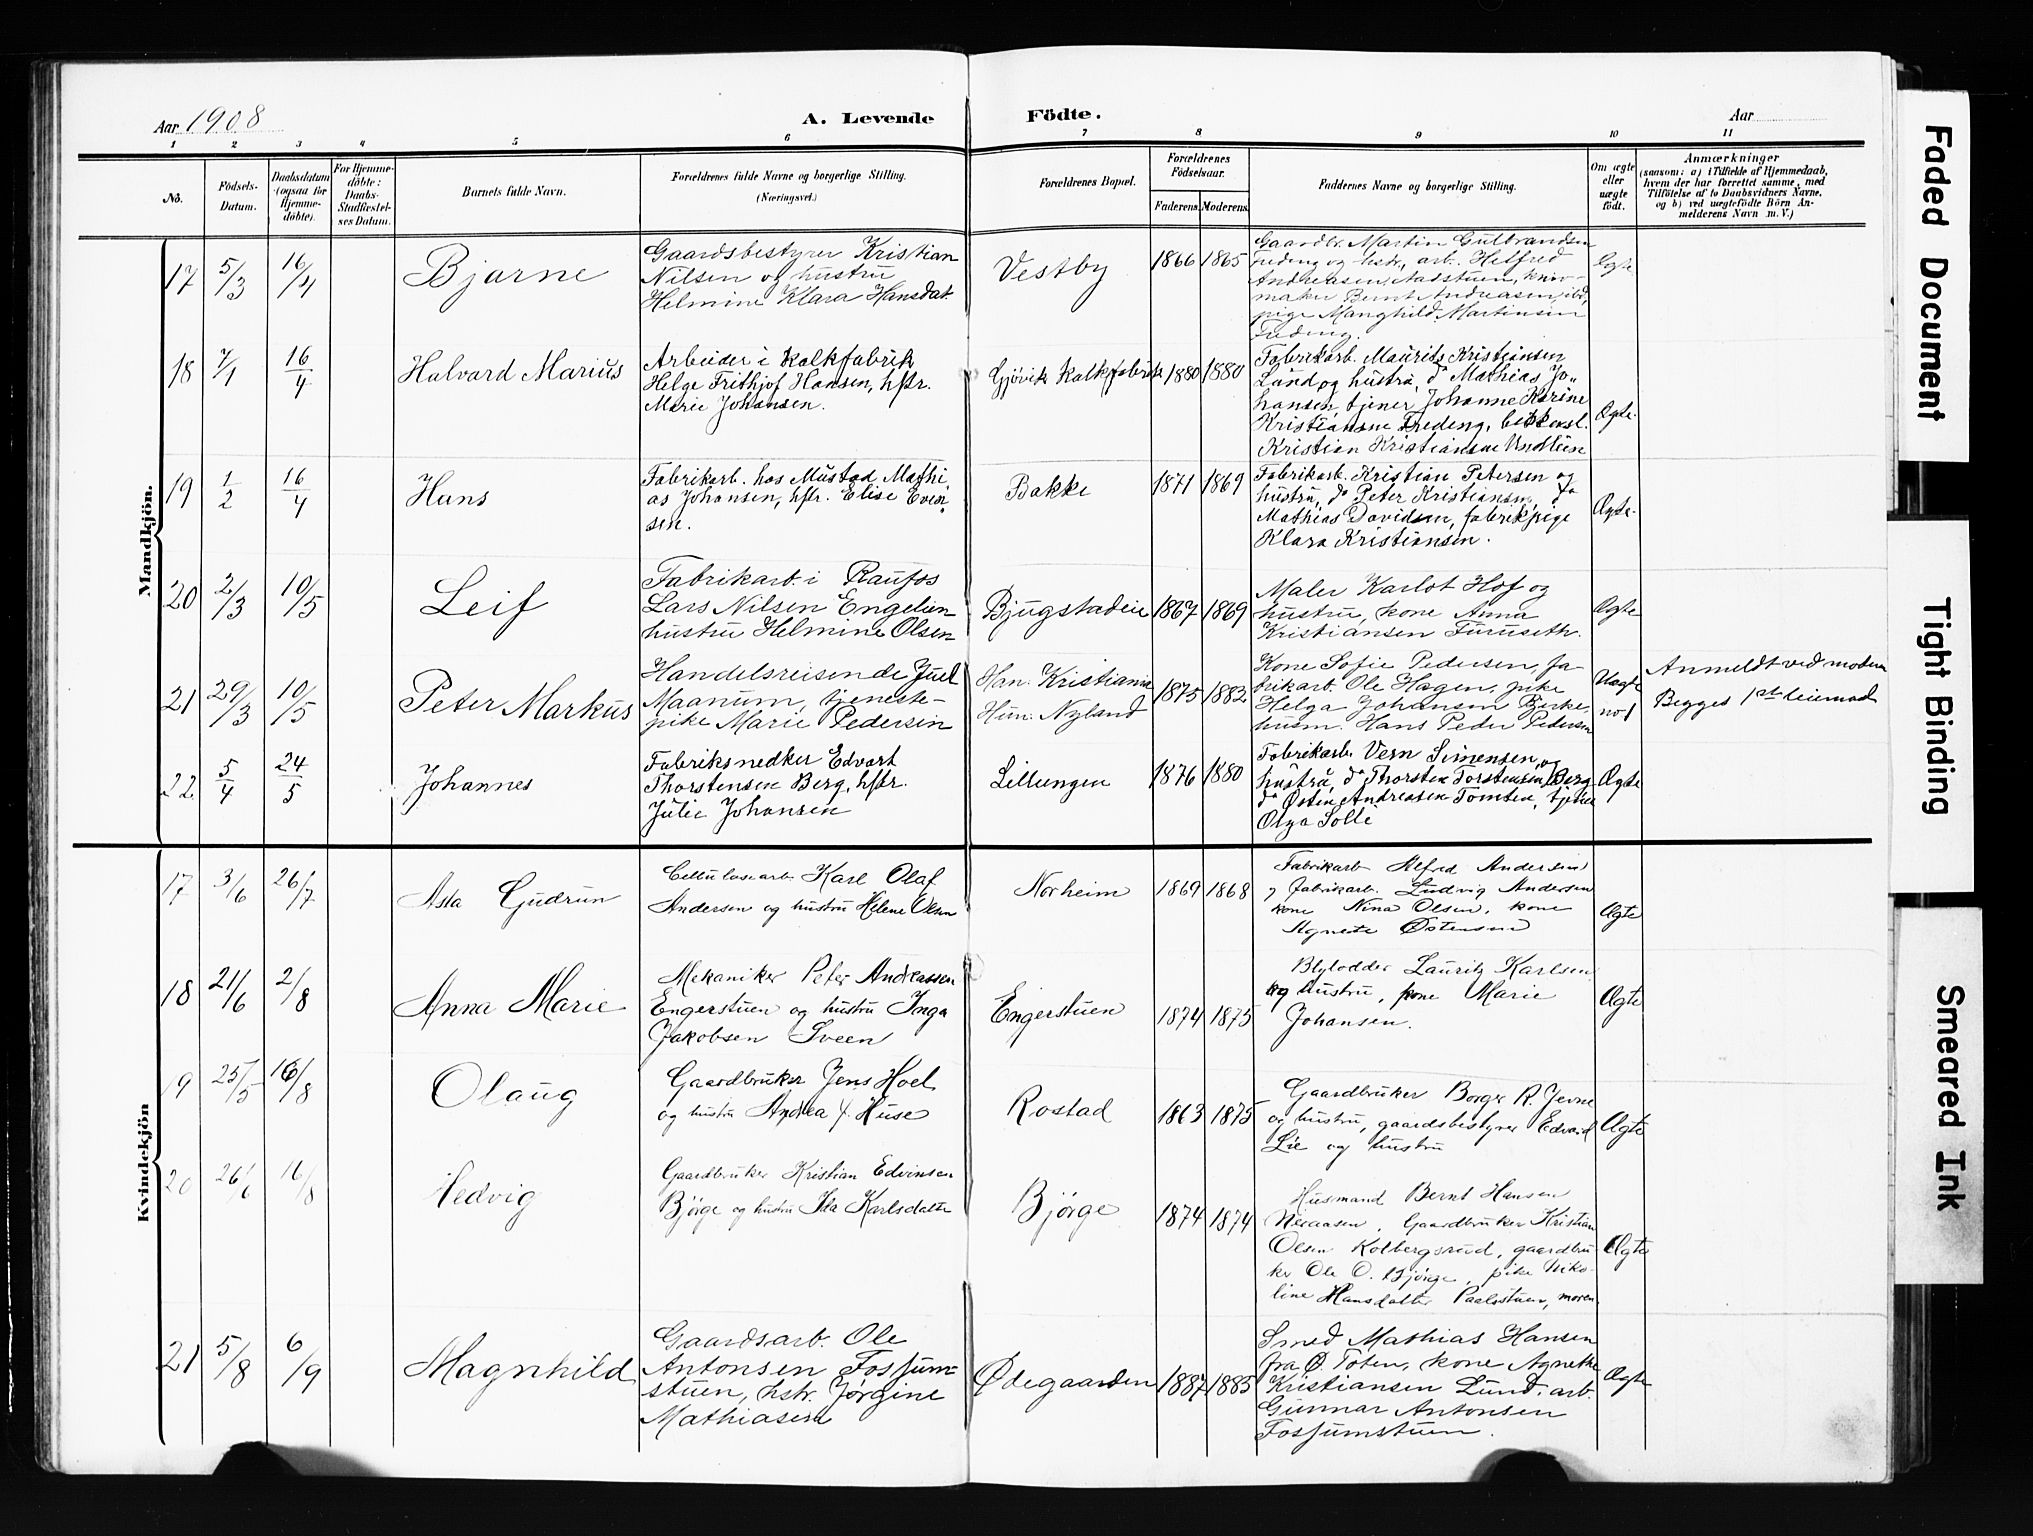 Aar 1908
A. Levende Födte.
Aar
1 2 3 4 5 6 7 8 9 10 11
No.
Födsels-Datum.
Daabsdatum (ogsaa for Hjemme-döbte).
For Hjemme-döbte: Daabs-Stadfæstel-ses Datum.
Barnets fulde Navn.
Forældrenes fulde Navne og borgerlige Stilling.
(Næringsvei.)
Forældrenes Bopæl.
Forældrenes Födselsaar.
Faderens. Moderens.
Faddernes Navne og borgerlige Stilling.
Om ægte eller uægte født.
Anmærkninger
(saasom: a) i Tilfælde af Hjemmedaab,
hvem der har forrettet samme, med
Tilföielse af to Daabsvidners Navne,
og b) ved uægtefödte Börn An-
melderens Navn m. V.)
Mandkjön.
17 5/3 16/4 Bjarne
Gaardsbestyrer Kristian
Nilsen og hustru
Helmine Klara Hansdat.
Vestby 1866 1865
Gaardbr. Martin Gulbrandsen
Freding og hstr., arb. Helfred
Andreasen Stadstuen, kniv-
maker Bernt Andreasen, ibd,
pige Manghild Martinsen
Freding.
Ægte
18 7/1 16/4 Halvard Marius
Arbeider i Kalkfabrik
Helge Frithjof Hansen, hstr.
Marie Johansen.
Gjøvik Kalkfabrik 1880 1880
Fabrikarb. Maurits Kristiansen
Lund og hustru, do Mathias Jo-
hansen, tjener Johanne Karine
Kristiansne Freding,
Kristian Kristiansne
Ægte.
19 1/2 16/4 Hans
Fabrikarb. hos Mustad Mathi-
as Johansen, hstr. Elise Even-
sen.
Bakke 1871 1869
Fabrikarb. Kristian Petersen og
hustru, do Peter Kristiansen, do
Mathias Davidsen, fabrikpige
Klara Kristiansen.
Ægte.
20 2/3 10/5 Leif
Fabrikarb. i Raufos
Lars Nilsen Engelien
hustru Helmine Olsen
Bjugstadeie 1867 1869
Maler Karlot Hof og
hustru, kone Anna
Kristiansen Furuseth.
Ægte
21 29/3 10/5 Peter Markus
Handelsreisende Juel
Maanum, tjeneste-
pike Marie Pedersen
Han: Kristiania
Hun: Nyland
1875 1882
Kone Sofie Pedersen, fa-
brikarb. Ole Hagen, pike
Helga Johansen Birke,
husm. Hans Peder Pedersen
Uægte
no 1
Anmeldt ved moderen
Begges 1ste leiermaal
22 5/4 24/5 Johannes
Fabriksnedker Edvart
Thorstensen Berg, hstr.
Julie Johansen
Lillungen 1876 1880
Fabrikarb. Vern Simensen, og
hustru, do Thorsten Torstensen Berg
do Østen Andreasen Tomten, tjener
Olga Solli
Ægte
Kvindekjön
17 3/6 26/7 Asta Gudrun
Cellulosearb. Karl Olaf
Andersen og hustru Helene Olsen
Norheim 1869 1868
Fabrikarb Alfred Andersen
, fabrikarb. Ludvig Andersen
kone Nina Olsen, kone
Agnete Østensen
Ægte
18 21/6 2/8 Anna Marie
Mekaniker Peter Andreassen
Engerstuen og hustru Inga
Jakobsen Sveen
Engerstuen 1874 1875
Blylodder Lauritz Karlsen
og hustru, kone Marie
Johansen.
Ægte
19 25/5 16/8 Olaug
Gaardbruker Jens Hoel
og hustru Andrea f. Huse
Rostad 1863 1875
Gaardbruker Borger R. Jevne
og hustru, gaardsbestyrer Edvard
Lie og hustru
Ægte
20 26/6 16/8 Hedvig
Gaardbruker Kristian Edvinsen
Bjørge og hustru Ida Karlsdatter
Bjørge 1874 1874
Husmand Bernt Hansen
Nesaasen, Gaardbruker Kristian
Olsen Kolbergsrud, gaardbru-
ker Ole O. Bjørge, pike Niko-
line Hansdatter Paalsstuen, moren
Ægte
21 5/8 6/9 Magnhild
Gaardsarb. Ole
Antonsen Fossum-
stuen, hstr. Jørgine
Mathiasen
Ødegaarden 1887 1883
Smed Mathias Hansen
fra Ø. Toten, kone Agnethe
Kristiansen Lund, arb.
Gunnar Antonsen
Fossumstuen.
Ægte
Faded Document
Tight Binding
Smeared Ink